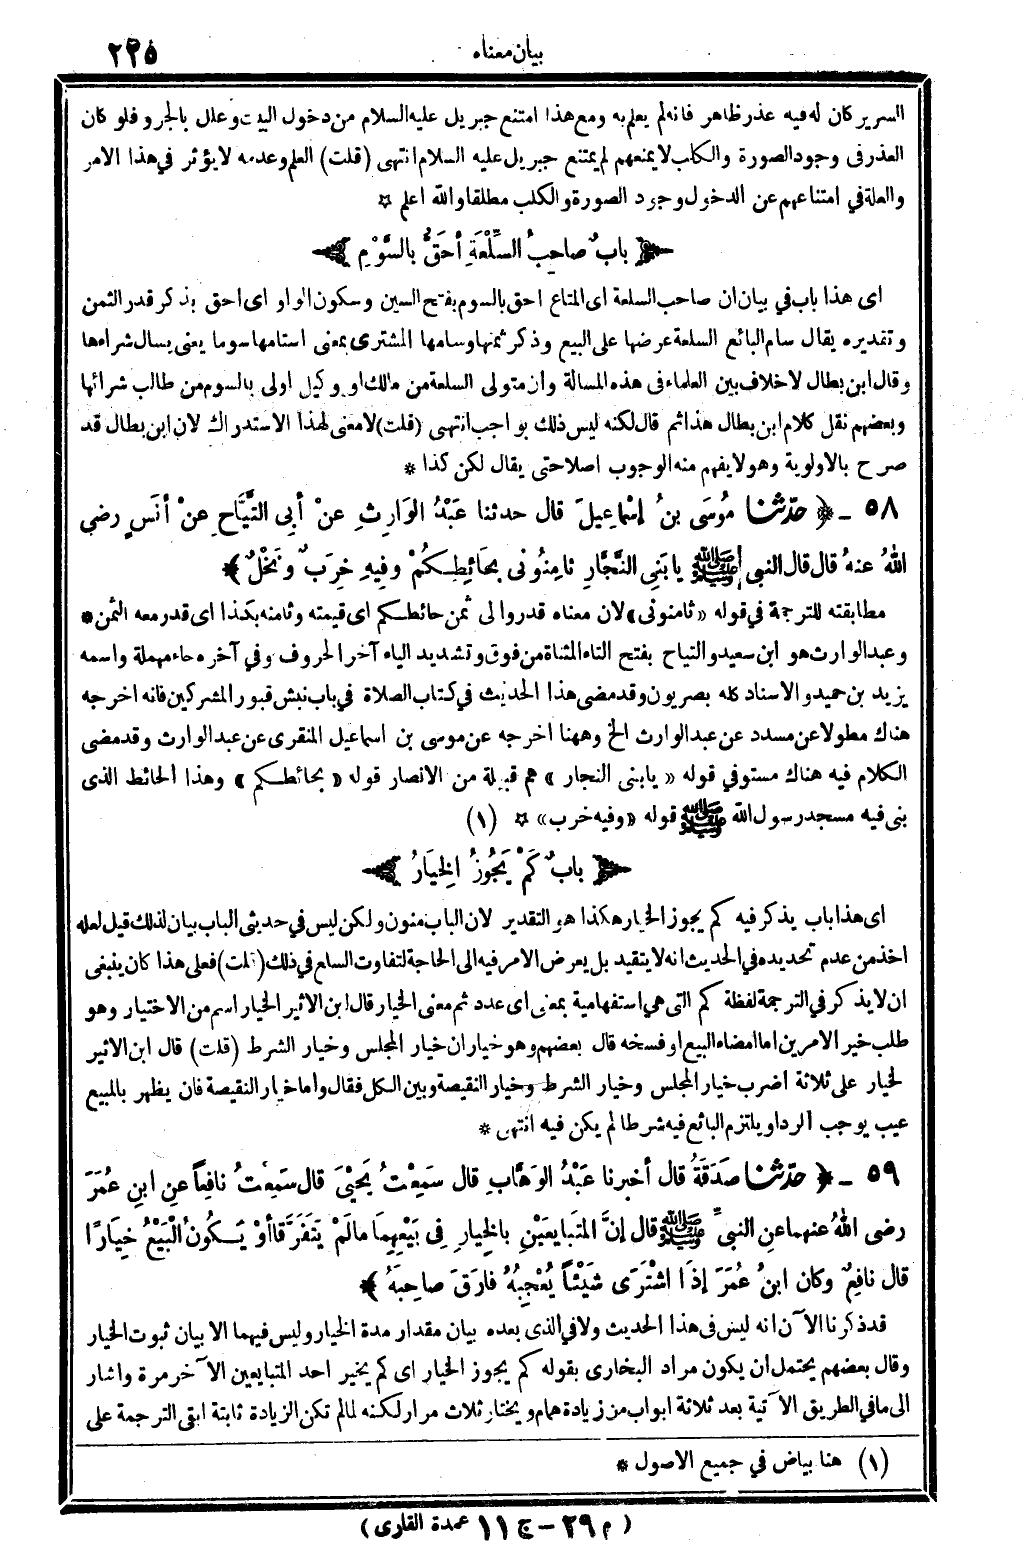 بيان معناه ٢٢٥
السرير كان له فيه عذر ظاهر فانه لم يعلم به ومع هذا امتنع جبريل عليه السلام من دخول البيت وعلل بالجرو فلو كان
العذر فى وجود الصورة والكلب لا يمنعهم لم يمتنع جبريل عليه السلام انتهى (قلت) العلم وعدمه لا يؤثر في هذا الامر
والعلة في امتناعهم عن الدخول وجود الصورة والكلب مطلقا والله اعلم ☆
﴿ بابٌ صاحبُ السِّلْعَةِ أحَقُّ بالسَّوْمِ ﴾
اى هذا باب في بيان ان صاحب السلعة اى المتاع احق بالسوم بفتح السين وسكون الواو اى احق بذكر قدر الثمن
وتقديره يقال سام البائع السلعة عرضها على البيع وذكر ثمنها وسامها المشترى بمعنى استامها سوما يعنى يسال شراءها
وقال ابن بطال لا خلاف بين العلماء فى هذه المسالة وان متولى السلعة من مالك او وكيل اولى بالسوم من طالب شرائها
وبعضهم نقل كلام ابن بطال هذا ثم قال لكنه ليس ذلك بواجب انتهى (قلت) لا معنى لهذا الاستدراك لان ابن بطال قد
صرح بالاولوية وهو لا يفهم منه الوجوب اصلا حتى يقال لكن كذا *
٥٨ ـ ﴿ حدّثنا مُوسَى بنُ إسْماعِيلَ قال حدثنا عَبْدُ الوَارِثِ عنْ أبِي التَّيَّاحِ عنْ أنَسٍ رضي
اللهُ عنهُ قال قال النبي ﷺ يا بَنِي النَّجَّارِ ثامِنُونى بِحَائِطِكُمْ وفِيهِ خِرَبٌ ونَخْلٌ ﴾
مطابقته للترجمة في قوله «ثامنونى» لان معناه قدروا لى ثمن حائطكم اى قيمته وثامنه بكذا اى قدر معه الثمن *
وعبد الوارث هو ابن سعيد والتياح بفتح التاء المثناة من فوق وتشديد الياء آخر الحروف وفي آخره حاء مهملة واسمه
يزيد بن حميد والاسناد كله بصريون وقد مضى هذا الحديث في كتاب الصلاة في باب نبش قبور المشركين فانه اخرجه
هناك مطولا عن مسدد عن عبد الوارث الخ وههنا اخرجه عن موسى بن اسماعيل المنقرى عن عبد الوارث وقد مضى
الكلام فيه هناك مستوفي قوله «يا بنى النجار» هم قبيلة من الانصار قوله «بحائطكم» وهذا الحائط الذى
بنى فيه مسجد رسول الله ﷺ قوله «وفيه خرب» ☆ (١)
﴿ بابٌ كَمْ يَجُوزُ الخِيَارُ ﴾
اى هذا باب يذكر فيه كم يجوز الخيار هكذا هو التقدير لان الباب منون ولكن ليس في حديثى الباب بيان لذلك قيل لعله
اخذ من عدم تحديده في الحديث انه لا يتقيد بل يعرض الامر فيه الى الحاجة لتفاوت السلع في ذلك (قلت) فعلى هذا كان ينبغى
ان لا يذكر في الترجمة لفظة كم التى هي استفهامية بمعنى اى عدد ثم معنى الخيار قال ابن الاثير الخيار اسم من الاختيار وهو
طلب خير الامرين اما امضاء البيع او فسخه قال بعضهم وهو خياران خيار المجلس وخيار الشرط (قلت) قال ابن الاثير
لخيار على ثلاثة اضرب خيار المجلس وخيار الشرط وخيار النقيصة وبين الكل فقال واما خيار النقيصة فان يظهر بالمبيع
عيب يوجب الرد او يلتزم البائع فيه شرطا لم يكن فيه انتهى *
٥٩ ـ ﴿ حدّثنا صَدَقَةُ قال أخبرنا عَبْدُ الوَهَّابِ قال سَمِعْتُ يَحْيَى قال سَمِعْتُ نافِعاً عنِ ابنِ عُمَرَ
رضى اللهُ عنهما عنِ النبيِّ ﷺ قال إنَّ المُتَبايعَيْنِ بالخِيارِ فى بَيْعِهِما مالَمْ يَتَفَرَّقا أوْ يَكُونُ البَيْعُ خِيَارًا
قال نافِعٌ وكان ابنُ عُمَرَ إذَا اشْتَرَى شَيْئاً يُعْجِبُهُ فارَقَ صاحِبَهُ ﴾
قد ذكرنا الآن انه ليس فى هذا الحديث ولا في الذى بعده بيان مقدار مدة الخيار وليس فيهما الا بيان ثبوت الخيار
وقال بعضهم يحتمل ان يكون مراد البخارى بقوله كم يجوز الخيار اى كم يخير احد المتبايعين الآخر مرة واشار
الى ما في الطريق الآتية بعد ثلاثة ابواب من زيادة همام ويختار ثلاث مرار لكنه لما لم تكن الزيادة ثابتة ابقى الترجمة على
(١) هنا بياض في جميع الاصول *
( م ٢٩ – ج ١١ عمدة القارى )